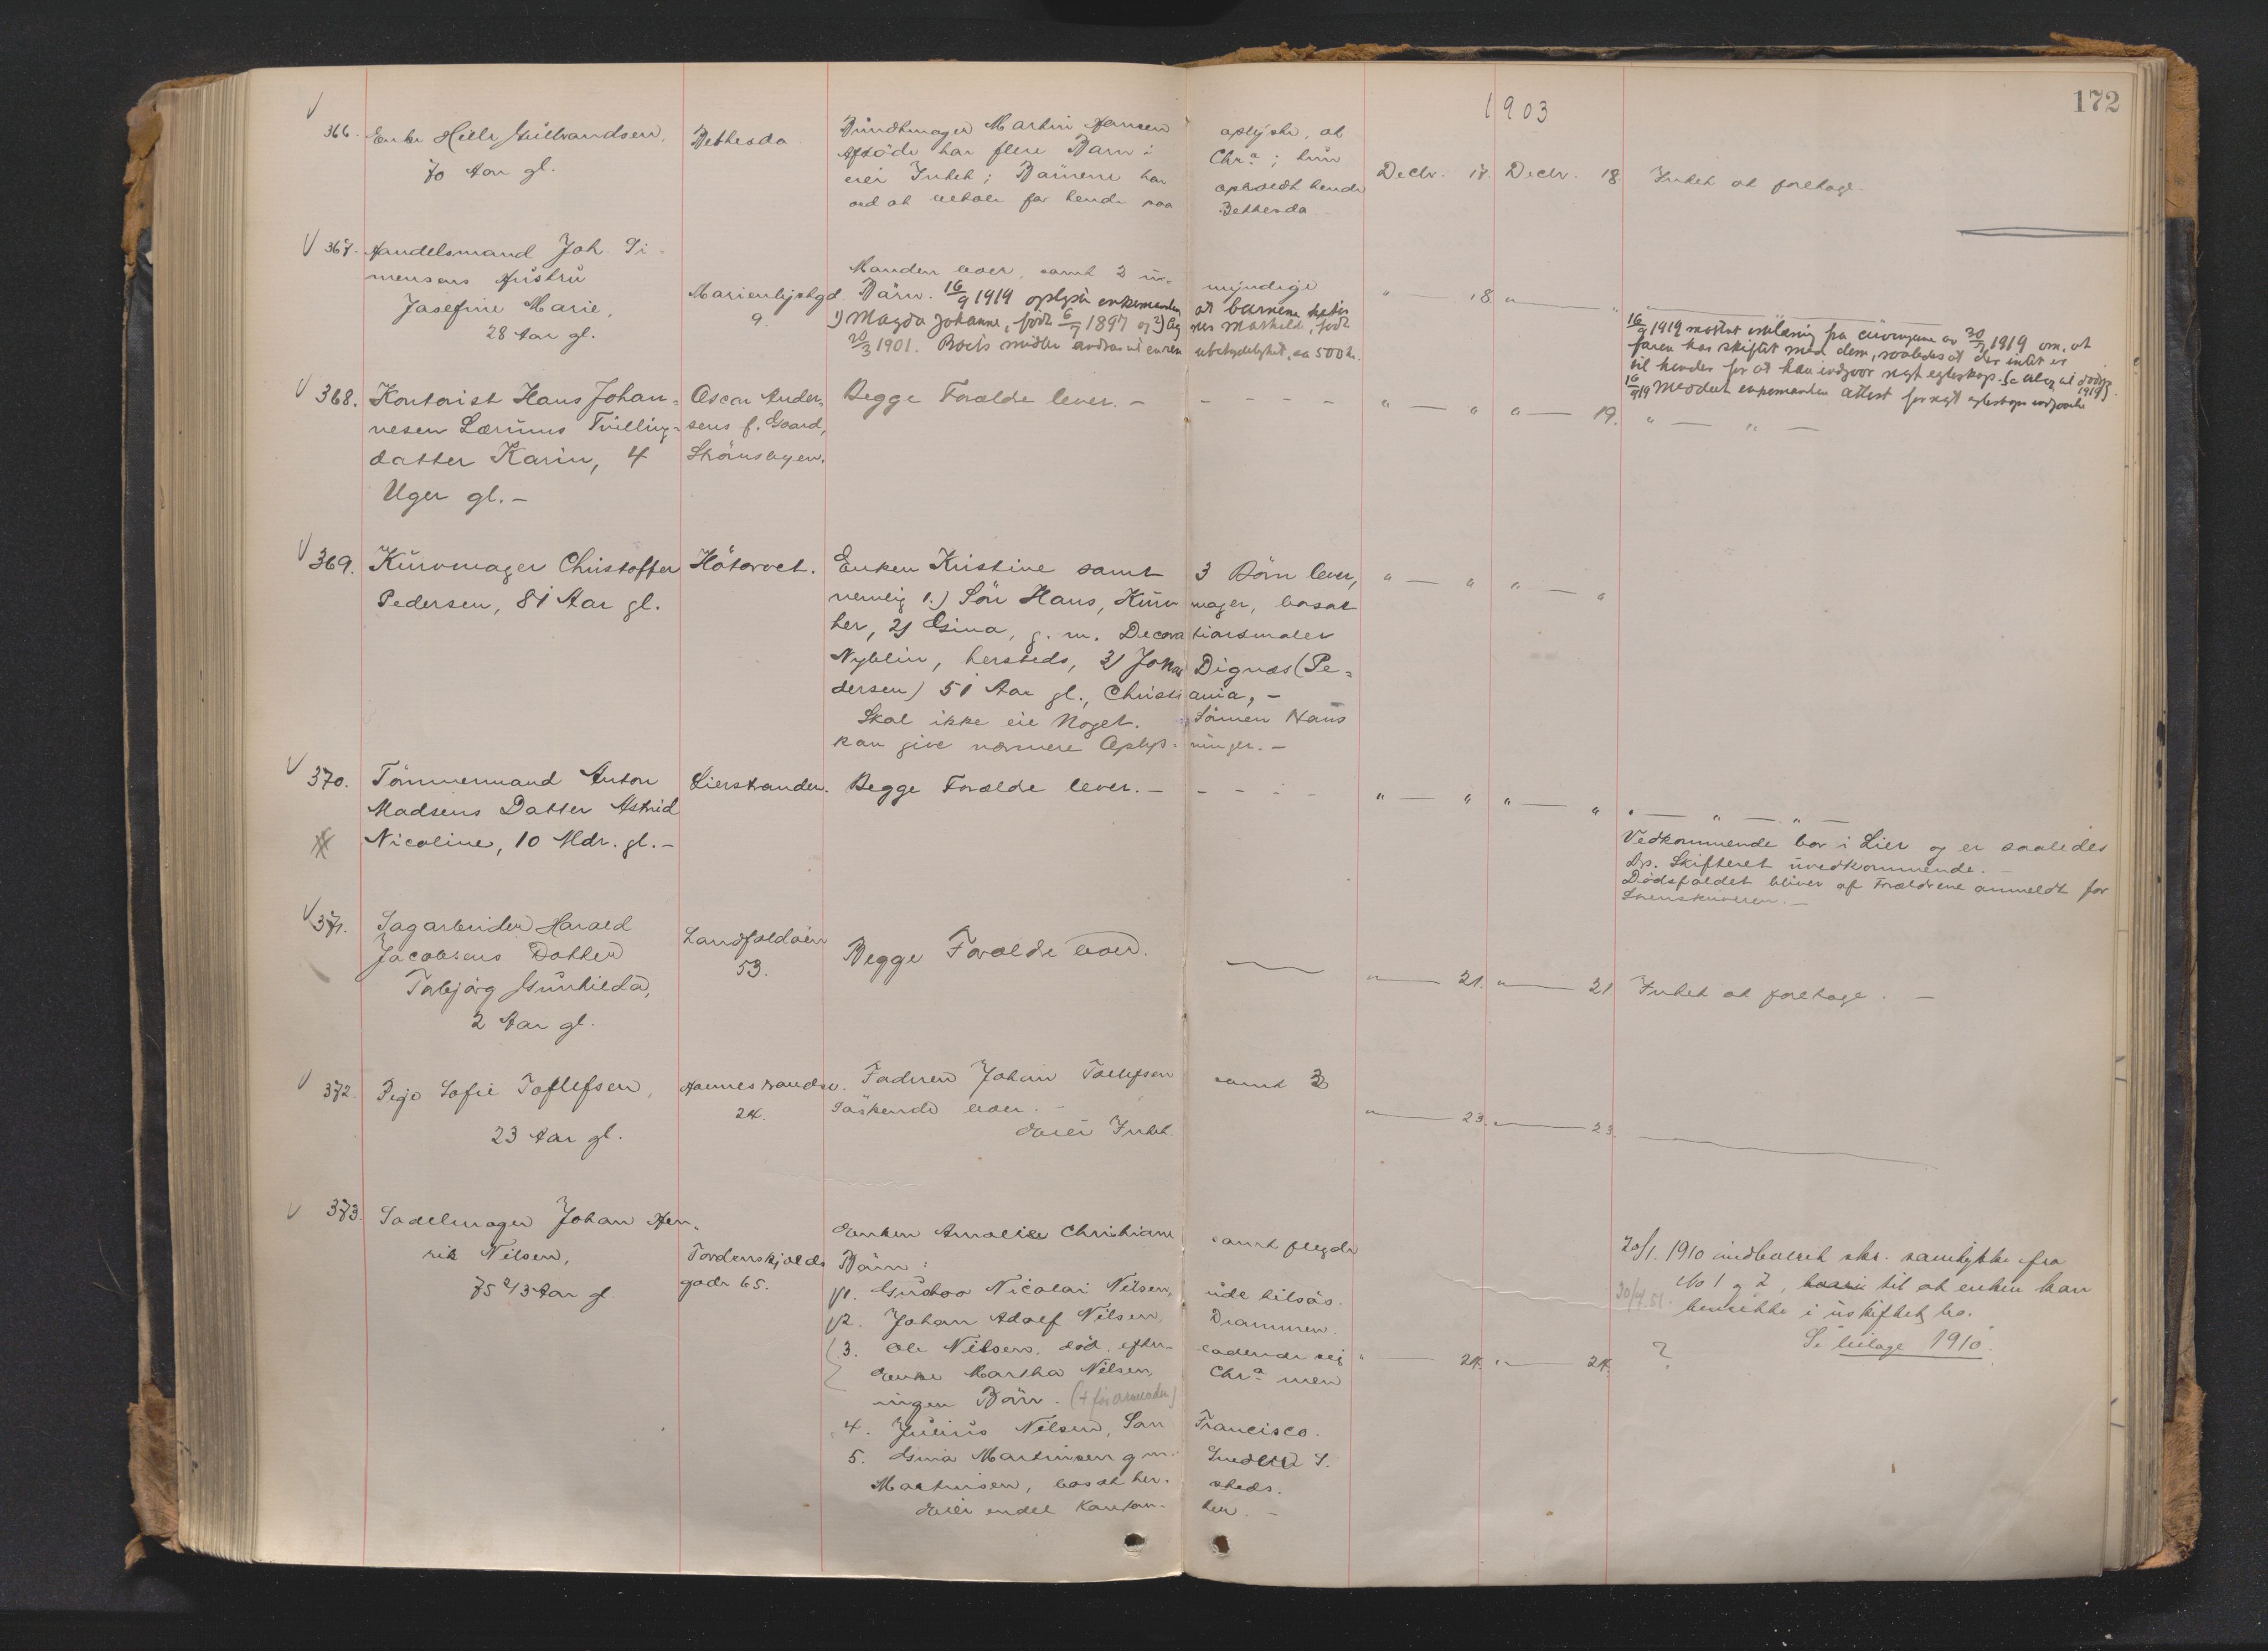 172
1903
366. Enke Helle Gulbrandsen,
70 Aar gl.
Bethesda
Bundtmager Martin Hansen oplyste, at
Afdöde har flere Barn i Chr.a; hun
eier Intet; Bärnene har opholdt hende
ved at betale for hende paa Bethesda
Decbr. 17. Decbr. 18. Intet at foretage.
367. Handelsmand Joh. Si-
mensens Hustru
Josefine Marie,
28 Aar gl.
Marienlystgd
9.
Manden lever, samt 2 u- myndige
Bärn. 16/9 1919 oplyste enkemanden at barnene heter
1) Magda Johanne, født 6/7 1897 og 2) Agnes Mathilde, født
20/3 1901. Boets midler androg til en ren ubetydelighet, ca 500 kr.
" — 18 " — "
16/9 1919 mottat erklæring fra arvingene av 30/7 1919 om, at
faren har skiftet med dem, saaledes at der intet er
til hinder for at han indgaar nyt egteskap.
16/9 19 Meddelt enkemanden attest for nyt egteskaps indgaaelse
368. Kontorist Hans Johan-
nesen Lærums Tvilling-
datter Karin, 4
Uger gl. —
Oscar Ander-
sens f. Gaard,
Strömsveien.
Begge Forældre lever. — - - - -
" — " " — 19. " — " —
369. Kurvmager Christoffer
Pedersen, 81 Aar gl.
Hötorvet.
Enken Kristine samt 3 Börn lever,
nemlig 1.) Sön Hans, Kurvmager, bosat
her, 2) Gina, g. m. Decorationsmaler
Nyblin, hersteds, 3) Johan Dignæs (Pe-
dersen) 51 Aar gl., Christiania, —
Skal ikke eie Noget. Sönnen Hans
kan give nærmere Oplysninger. —
" — " " — "
370. Tömmermand Anton
Madsens Datter Astrid
Nicoline, 10 Mdr. gl. —
Lierstranden.
Begge Forældre lever. — - - - -
" — " " — " " — " — " —
Vedkommende bor i Lier og er saaledes
Ds. Skifteret uvedkommende. —
Dödsfaldet bliver af Forældrene anmeldt for
Sorenskriveren. —
371. Sagarbeider Harald
Jacobsens Datter
Torbjörg Gunhilda,
2 Aar gl.
Landfaldöen
53.
Begge Forældre lever. —
" — 21. " — 21. Intet at foretage. —
372. Pige Sofie Tollefsen,
23 Aar gl.
Havnestranden.
24.
Faderen Johan Tollefsen samt 3
Söskende lever. —
Eier Intet.
" — 23. " — 23. —
373. Sadelmager Johan Hen-
rik Nilsen,
75 2/3 Aar gl.
Tordenskjolds
gade 65.
Enken Amalie Christiane samt fölgde
Bärn:
1. Gustav Nicolai Nilsen, ude tilsös.
2. Johan Adolf Nilsen, Drammen.
3. Ole Nilsen, död, efter- ladende sig
Enke Martha Nilsen, Chr.a men
ingen Bärn.
4. Julius Nilsen, San Francisco.
5. Gina Martinsen g m. Snedker S.
Martinsen, bosat her- steds.
Eier endel Kontan- ter. —
" — 24. " — 24. ?
20/1. 1910 indleveret skr. samtykke fra
No 1 og 2, til at enken kan
hensidde i uskiftet bo.
Se bilage 1910.